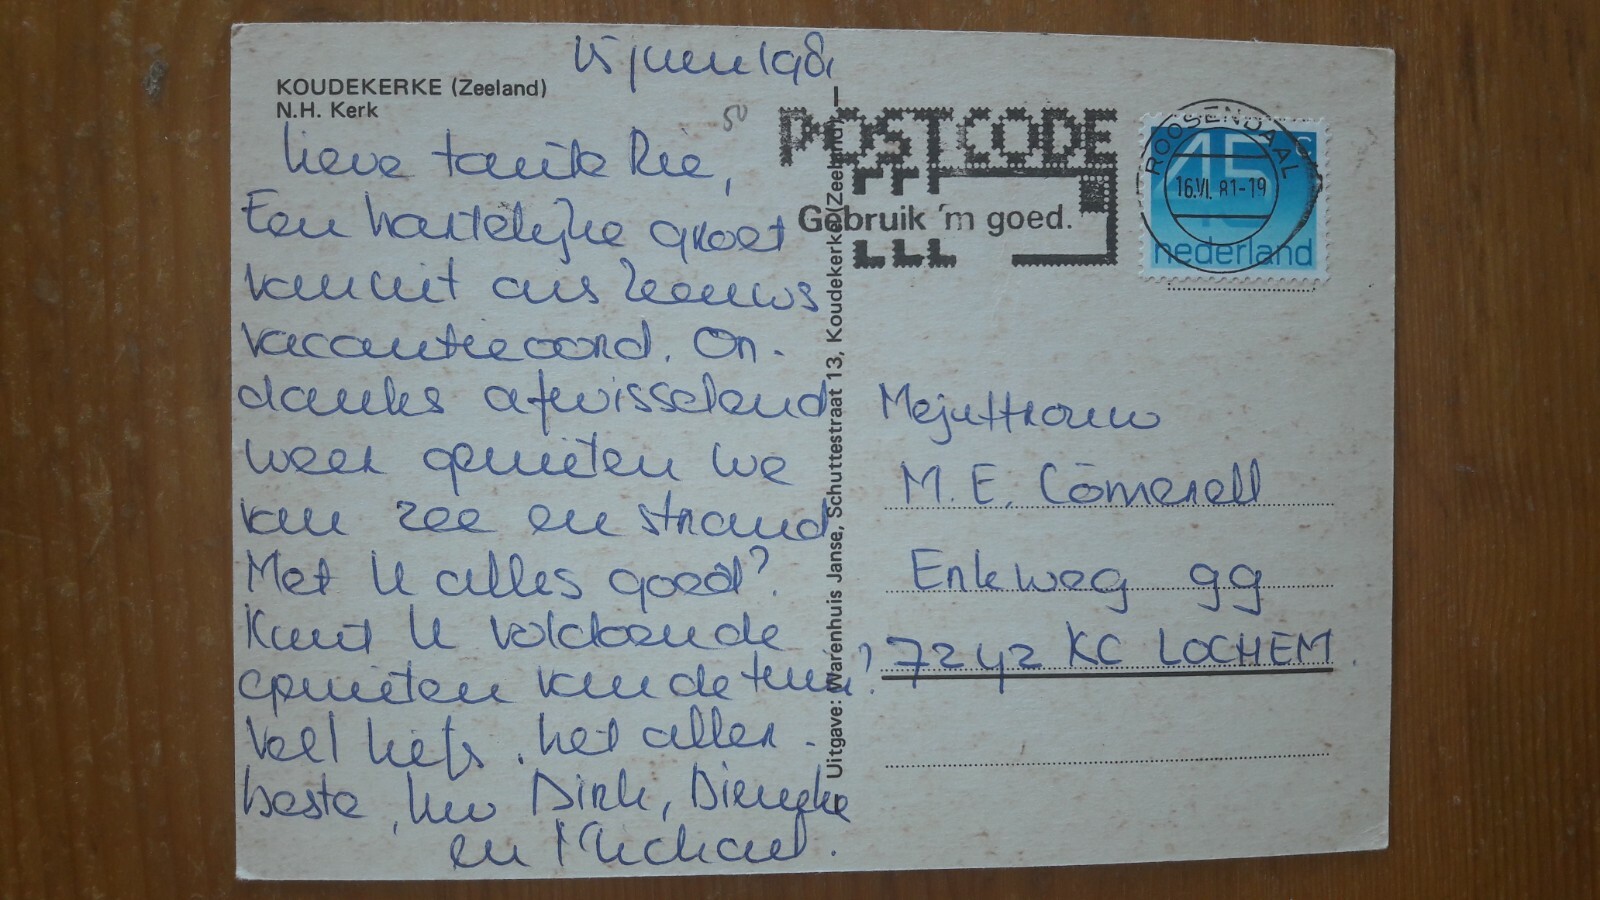 15 juni 1981
KOUDEKERKE (Zeeland)
N.H. Kerk
50
Lieve tante Rie,
Een hartelijke groet
vanuit ons Zeeuws
vacantieoord. On-
danks afwisselend
weer genieten we
van zee en strand
Met U alles goed?
Kunt U voldoende
genieten van de tuin?
Veel liefs, het aller-
beste, Uw Dirk, Dieneke
en Michael.
Uitgave: Warenhuis Janse, Schuttestraat 13, Koudekerke (Zeeland)
POSTCODE
Gebruik 'm goed.
ROOSENDAAL
16.VI.81-19
45 c
nederland
Mejuffrouw
M. E. Cömerell
Enkweg 99
7242 KC LOCHEM